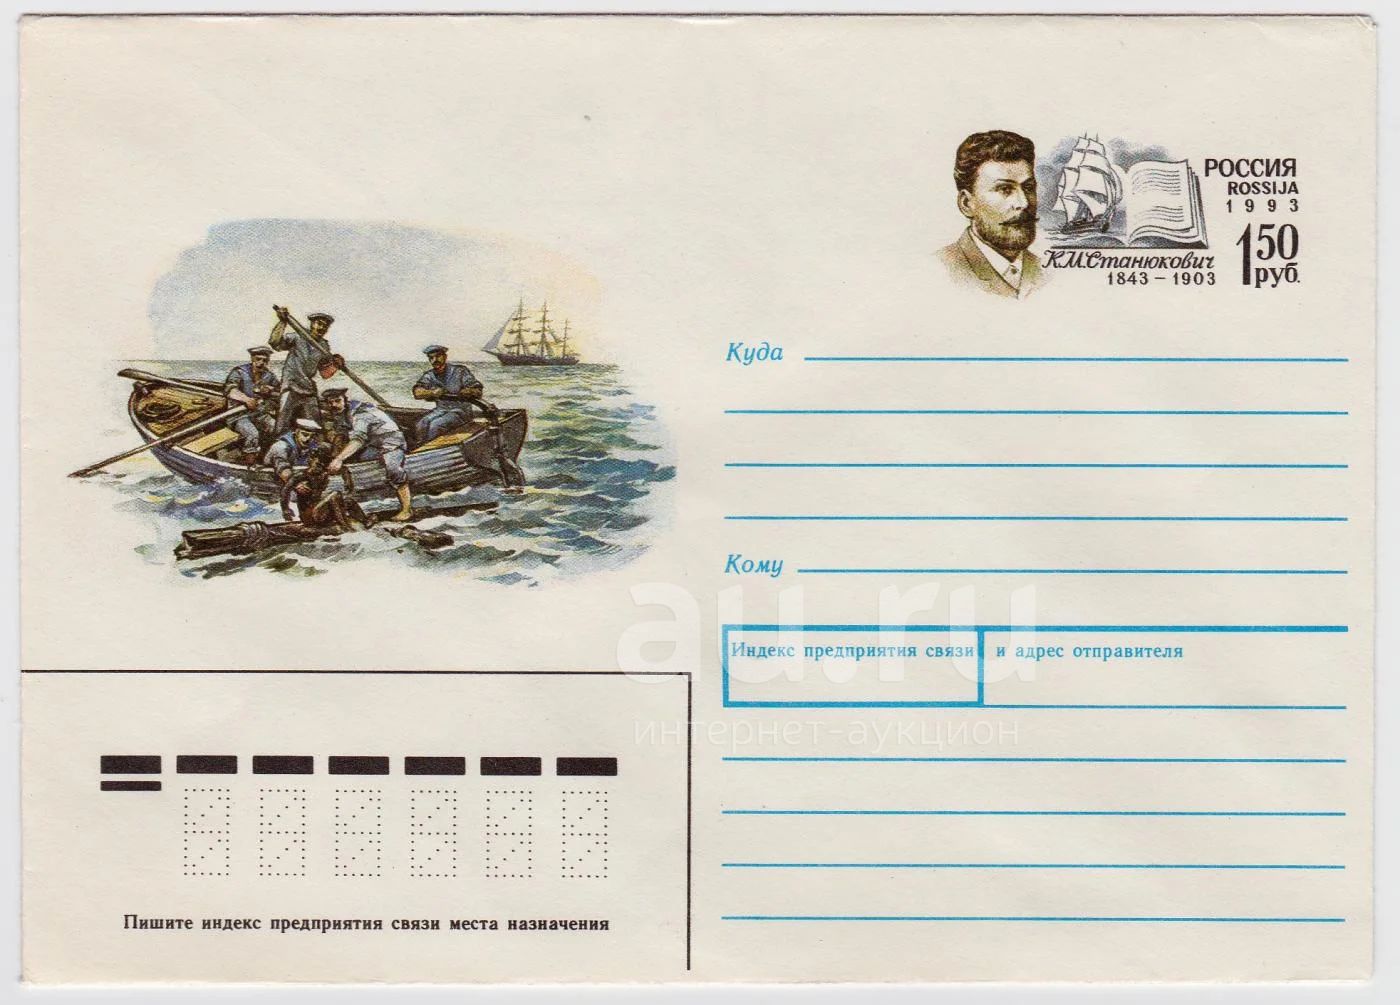 РОССИЯ
ROSSIJA
1993
1 50 руб.
К.М.Станюкович
1843 – 1903
Куда
Кому
Индекс предприятия связи и адрес отправителя
Пишите индекс предприятия связи места назначения
au.ru
интернет-аукцион